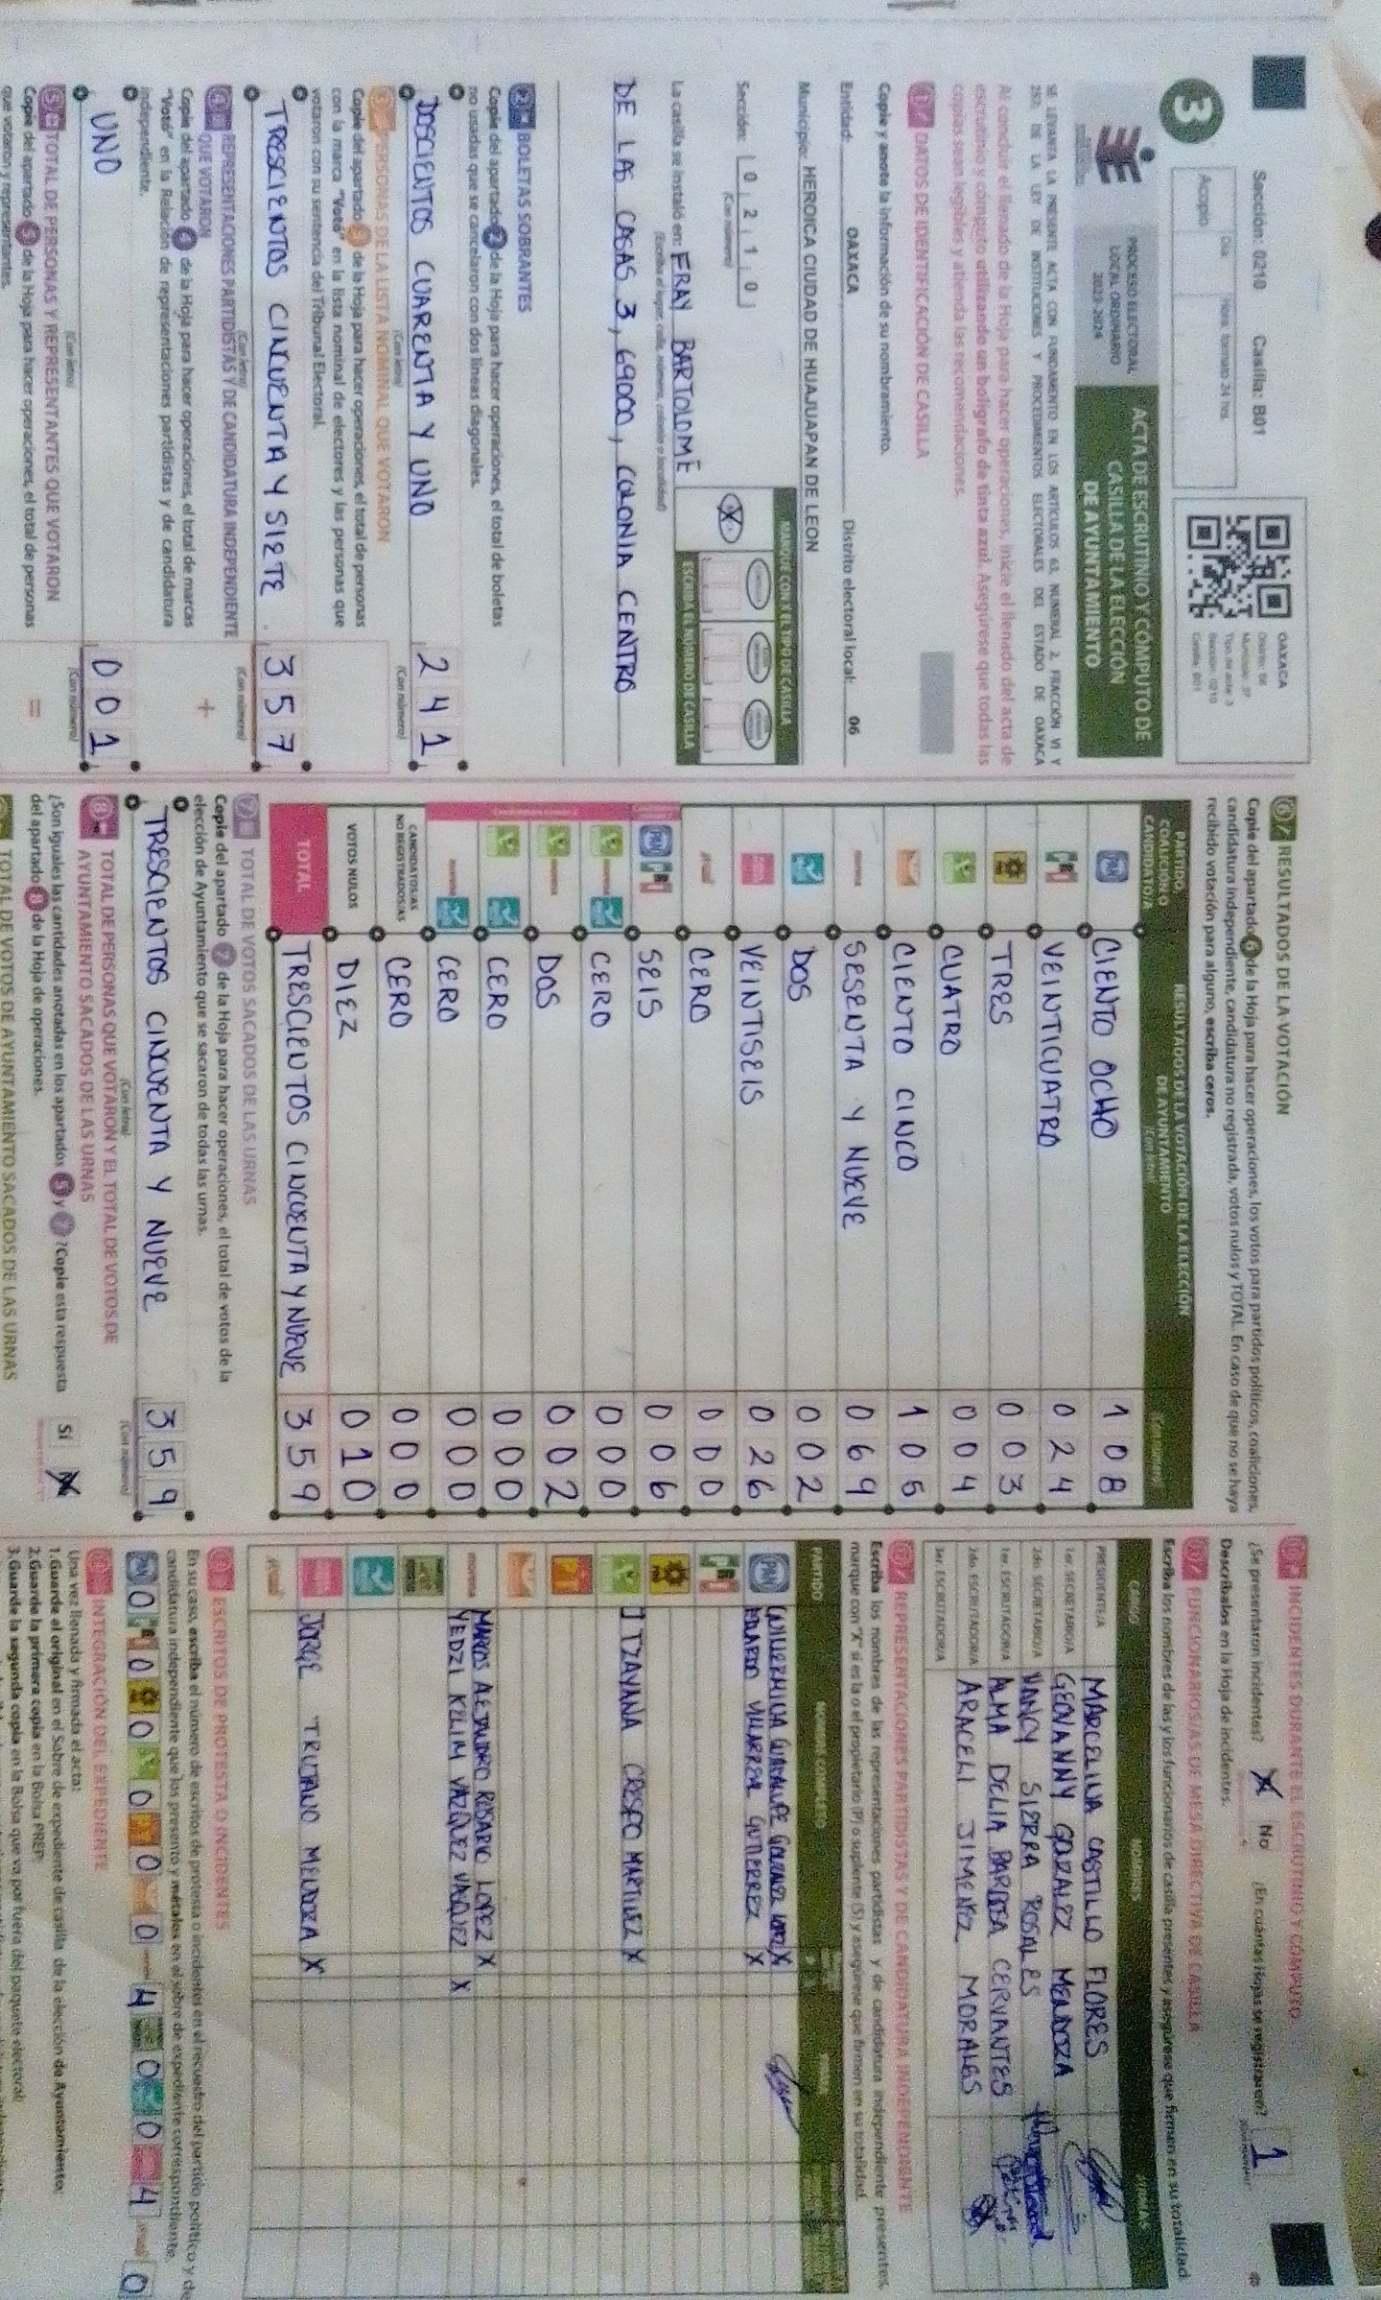 Sección: 0210 Casilla: B01
3
Acopio
Día
Hora, formato 24 hrs.
OAXACA
PROCESO ELECTORAL
LOCAL ORDINARIO
2023-2024
ACTA DE ESCRUTINIO Y CÓMPUTO DE
CASILLA DE LA ELECCIÓN
DE AYUNTAMIENTO
SE LEVANTA LA PRESENTE ACTA CON FUNDAMENTO EN LOS ARTÍCULOS 63, NUMERAL 2, FRACCIÓN VI Y
DE LA LEY DE INSTITUCIONES Y PROCEDIMIENTOS ELECTORALES DEL ESTADO DE OAXACA
Al concluir el llenado de la Hoja para hacer operaciones, inicie el llenado del acta de
escrutinio y cómputo utilizando un bolígrafo de tinta azul. Asegúrese que todas las
copias sean legibles y atienda las recomendaciones.
1 DATOS DE IDENTIFICACIÓN DE CASILLA
Copie y anote la información de su nombramiento.
Entidad: OAXACA Distrito electoral local: 06
Municipio: HEROICA CIUDAD DE HUAJUAPAN DE LEON
Sección: 0 2 1 0
(Con número)
MARQUE CON X EL TIPO DE CASILLA
X
ESCRIBA EL NÚMERO DE CASILLA
La casilla se instaló en: FRAY BARTOLOMÉ
(Escriba el lugar, calle, número, colonia o localidad)
DE LAS CASAS 3, 69000, COLONIA CENTRO
2 BOLETAS SOBRANTES
Copie del apartado 2 de la Hoja para hacer operaciones, el total de boletas
no usadas que se cancelaron con dos líneas diagonales.
DOSCIENTOS CUARENTA Y UNO 2 4 1
(Con letra) (Con número)
3 PERSONAS DE LA LISTA NOMINAL QUE VOTARON
Copie del apartado 3 de la Hoja para hacer operaciones, el total de personas
con la marca "Votó" en la lista nominal de electores y las personas que
votaron con su sentencia del Tribunal Electoral.
TRESCIENTOS CINCUENTA Y SIETE. 3 5 7
(Con letra) (Con número)
4 REPRESENTACIONES PARTIDISTAS Y DE CANDIDATURA INDEPENDIENTE
QUE VOTARON
+
Copie del apartado 4 de la Hoja para hacer operaciones, el total de marcas
"Votó" en la Relación de representaciones partidistas y de candidatura
independiente.
UNO 0 0 1
(Con letra) (Con número)
5 TOTAL DE PERSONAS Y REPRESENTANTES QUE VOTARON
=
Copie del apartado 5 de la Hoja para hacer operaciones, el total de personas
que votaron y representantes.
6 RESULTADOS DE LA VOTACIÓN
Copie del apartado 6 de la Hoja para hacer operaciones, los votos para partidos políticos, coaliciones,
candidatura independiente, candidatura no registrada, votos nulos y TOTAL. En caso de que no se haya
recibido votación para alguno, escriba ceros.
PARTIDO, COALICIÓN O CANDIDATO/A
RESULTADOS DE LA VOTACIÓN DE LA ELECCIÓN
DE AYUNTAMIENTO
(Con letra) (Con número)
PAN CIENTO OCHO 1 0 8
PRI VEINTICUATRO 0 2 4
PRD TRES 0 0 3
CUATRO 0 0 4
CIENTO CINCO 1 0 5
morena SESENTA Y NUEVE 0 6 9
DOS 0 0 2
VEINTISEIS 0 2 6
CERO 0 0 0
PAN PRI SEIS 0 0 6
CERO 0 0 0
DOS 0 0 2
CERO 0 0 0
CERO 0 0 0
CANDIDATOS/AS
NO REGISTRADOS/AS CERO 0 0 0
VOTOS NULOS DIEZ 0 1 0
TOTAL TRESCIENTOS CINCUENTA Y NUEVE 3 5 9
7 TOTAL DE VOTOS SACADOS DE LAS URNAS
Copie del apartado 7 de la Hoja para hacer operaciones, el total de votos de la
elección de Ayuntamiento que se sacaron de todas las urnas.
TRESCIENTOS CINCUENTA Y NUEVE 3 5 9
(Con letra) (Con número)
8 TOTAL DE PERSONAS QUE VOTARON Y EL TOTAL DE VOTOS DE
AYUNTAMIENTO SACADOS DE LAS URNAS
¿Son iguales las cantidades anotadas en los apartados 5 y 7? Copie esta respuesta
del apartado 8 de la Hoja de operaciones.
Sí
TOTAL DE VOTOS DE AYUNTAMIENTO SACADOS DE LAS URNAS
10 INCIDENTES DURANTE EL ESCRUTINIO Y CÓMPUTO
¿Se presentaron incidentes? No ¿En cuántas Hojas se registraron? 1
Descríbalos en la Hoja de incidentes.
FUNCIONARIOS/AS DE MESA DIRECTIVA DE CASILLA
Escriba los nombres de las y los funcionarios de casilla presentes y asegúrese que firmen en su totalidad.
CARGO NOMBRES FIRMAS
PRESIDENTE/A MARCELINA CASTILLO FLORES
1er. SECRETARIO/A GEOVANNY GONZALEZ MENDOZA
2do. SECRETARIO/A NANCY SIERRA ROSALES
1er. ESCRUTADOR/A ALMA DELIA BARBOSA CERVANTES
2do. ESCRUTADOR/A ARACELI JIMENEZ MORALES
3er. ESCRUTADOR/A
REPRESENTACIONES PARTIDISTAS Y DE CANDIDATURA INDEPENDIENTE
Escriba los nombres de las representaciones partidistas y de candidatura independiente presentes,
marque con "X" si es la o el propietario (P) o suplente (S) y asegúrese que firmen en su totalidad.
PARTIDO NOMBRE COMPLETO FIRMA
PAN GUILLERMINA GUADALUPE GONZALEZ LOPEZ X
EDUARDO VILLARREAL GUTIERREZ X
PRI
PRD
ITZAYANA CRESPO MARTINEZ X
PT
morena MARCOS ALEJANDRO ROSARIO LOPEZ X
YEDZI KELIM VAZQUEZ VASQUEZ X
JORGE TRUJANO MENDOZA X
ESCRITOS DE PROTESTA O INCIDENTES
En su caso, escriba el número de escritos de protesta o incidentes en el recuadro del partido político y de
candidatura independiente que los presentó y métalos en el sobre de expediente correspondiente.
PAN 0 PRI 0 PRD 0 0 PT 0 0 4 0 0 4 0
INTEGRACIÓN DEL EXPEDIENTE
Una vez llenada y firmada el acta:
1. Guarde el original en el Sobre de expediente de casilla de la elección de Ayuntamiento;
2. Guarde la primera copia en la Bolsa PREP;
3. Guarde la segunda copia en la Bolsa que va por fuera del paquete electoral;